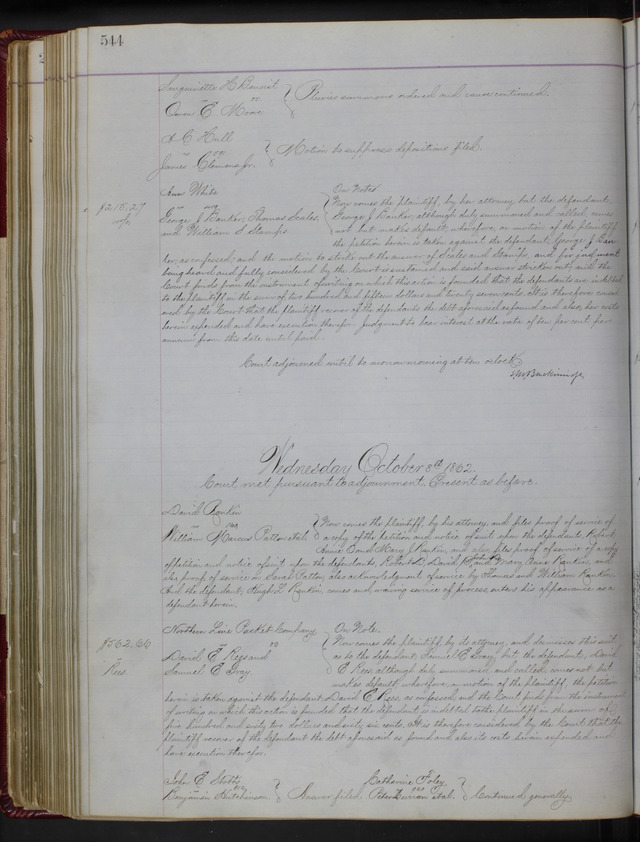 544
Pluries summons ordered and cause continued.
Owen E Moore
A C Hull
vs
James Clemens Jr.
Motion to suppress depositions filed.
Ann White
vs
George J Banker, Thomas Scales
and William S Stamps
$215.27
On Note
Now comes the plaintiff, by her attorney but the defendant,
George J Banker, although duly summoned and called, comes
not but makes default, wherefore, on motion of the plaintiff
the petition herein is taken against the defendant, George J Ban-
ker, as confessed, and the motion to strike out the answer of Scales and Stamps, and for judgment
being heard and fully considered by the Court is sustained and said answer stricken out, and the
Court finds from the instrument of writing on which this action is founded that the defendants are indebted
to the plaintiff in the sum of two hundred and fifteen dollars and twenty seven cents. It is therefore consid-
ered by the Court that the plaintiff recover of the defendants the debt aforesaid as found and also, her costs
herein expended and have execution therefor. Judgment to bear interest at the rate of ten per cent per
annum from this date until paid.
Court adjourned until to morrow morning at ten o'clock
Wednesday October 8th 1862.
Court met pursuant to adjournment. Present as before.
David Rankin
vs
William Marcus Patton et al.
Now comes the plaintiff, by his attorney, and files proof of service of
a copy of the petition and notice of suit upon the defendants, Robert,
Annie and Mary J Rankin and also files proof of service of a copy
of petition and notice of suit upon the defendants, Robert D, David P, and Mary Anne Rankin, and
also proof of service on Sarah Patton, also acknowledgment of service by Thomas and William Rankin.
And the defendant, Hugh L Rankin comes and waiving service of process, enters his appearance as a
defendant herein.
Northern Line Packet Company
vs
David E Rees and
Samuel E Gray
$562.66
Rees
On Note.
Now comes the plaintiff, by its attorney, and dismisses this suit
as to the defendant, Samuel E Gray, but the defendant, David
E Rees, although duly summoned and called, comes not but
makes default, wherefore, on motion of the plaintiff, the petition
herein is taken against the defendant David E Rees, as confessed, and the Court finds from the instrument
of writing on which this action is founded that the defendant is indebted to the plaintiff in the sum of
five hundred and sixty two dollars and sixty six cents. It is therefore considered by the Court that the
plaintiff recover of the defendant the debt aforesaid as found and also its costs herein expended and
have execution therefor.
John E
vs
Benjamin Hutchinson
Answer filed.
Catharine Foley
vs
Peter Curran et al.
Continued generally.